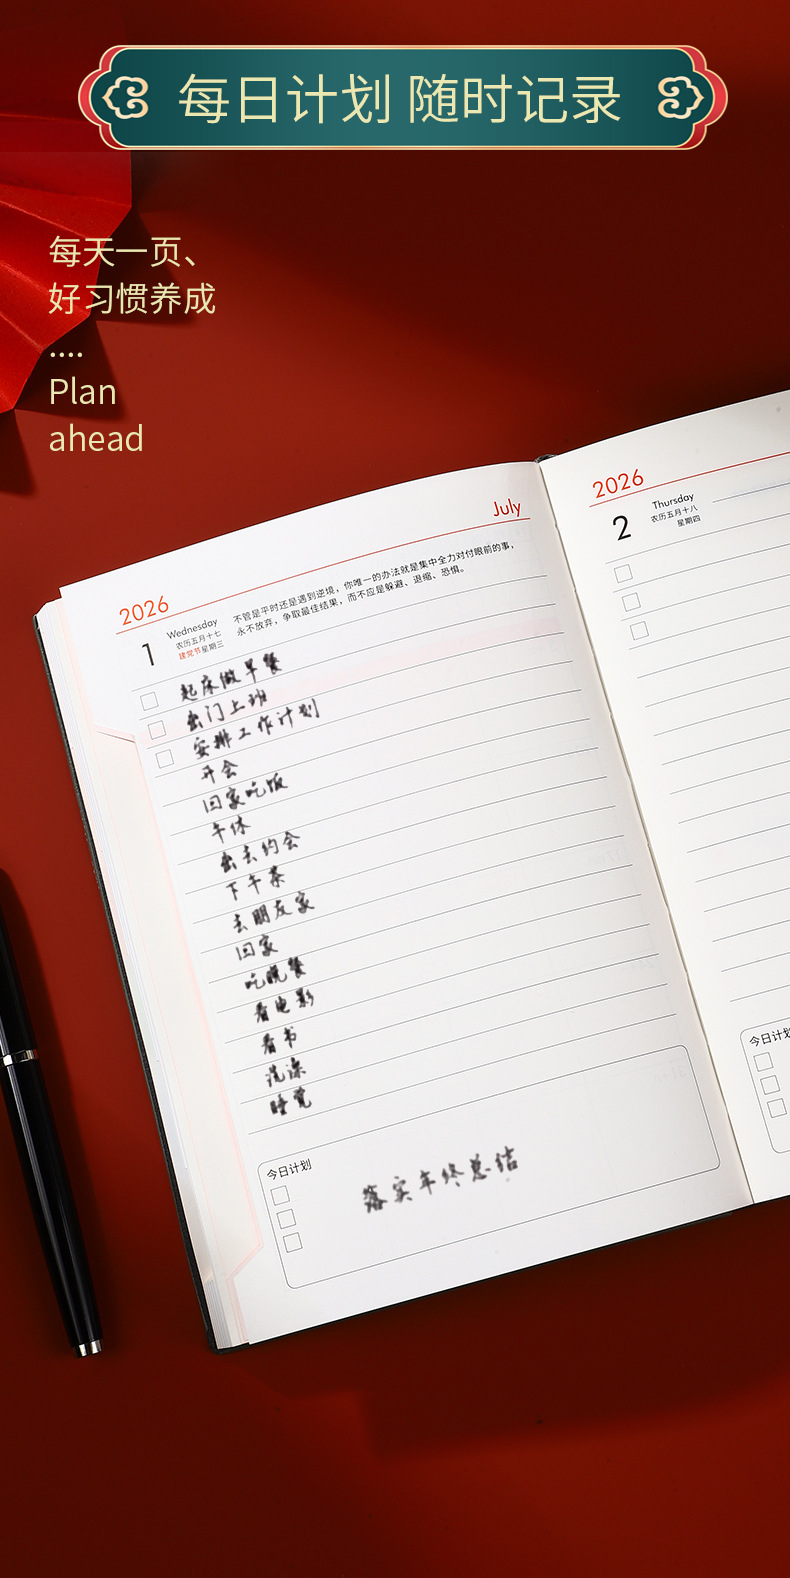 每日计划 随时记录
每天一页、
好习惯养成
....
Plan
ahead
July
2026
1
Wednesday
农历五月十七
建党节 星期三
不管是平时还是遇到逆境，你唯一的办法就是集中全力对付眼前的事，
永不放弃，争取最佳结果，而不应是躲避、退缩、恐惧。
起床做早餐
出门上班
安排工作计划
开会
回家吃饭
午休
出去约会
下午茶
去朋友家
回家
吃晚餐
看电影
看书
洗澡
睡觉
今日计划
落实年终总结
2026
2
Thursday
农历五月十八
星期四
今日计划